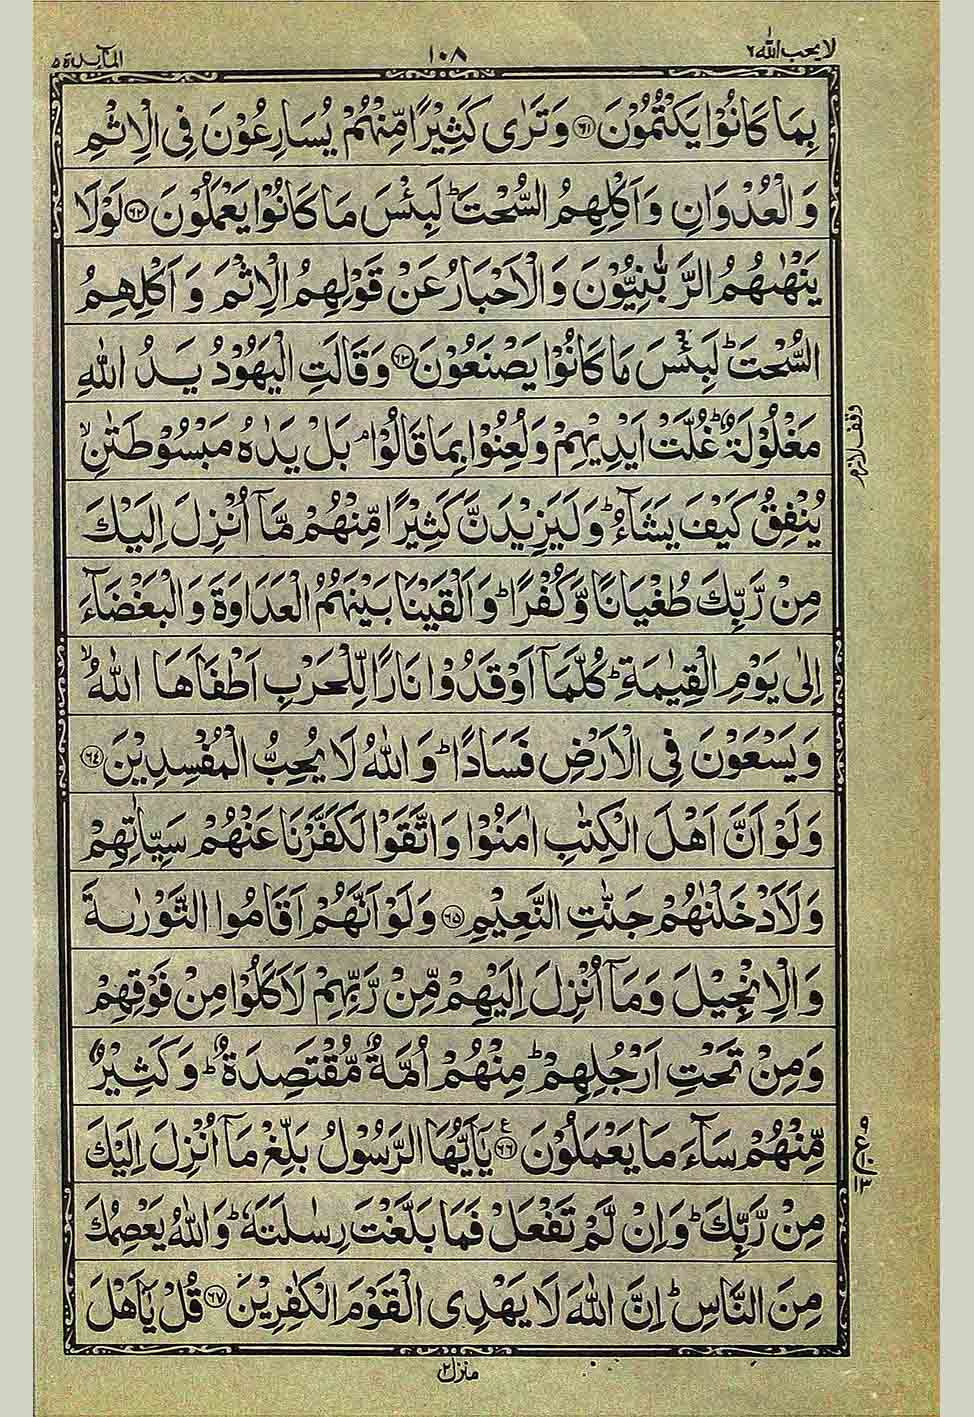 لا يحب الله ٦ ١٠٨ المآئدة ٥
بِمَا كَانُوْا يَكْتُمُوْنَ ﴿٦١﴾ وَتَرٰى كَثِيْرًا مِّنْهُمْ يُسَارِعُوْنَ فِى الْاِثْمِ
وَالْعُدْوَانِ وَاَكْلِهِمُ السُّحْتَ ؕ لَبِئْسَ مَا كَانُوْا يَعْمَلُوْنَ ﴿٦٢﴾ لَوْلَا
يَنْهٰىهُمُ الرَّبّٰنِيُّوْنَ وَالْاَحْبَارُ عَنْ قَوْلِهِمُ الْاِثْمَ وَاَكْلِهِمُ
السُّحْتَ ؕ لَبِئْسَ مَا كَانُوْا يَصْنَعُوْنَ ﴿٦٣﴾ وَقَالَتِ الْيَهُوْدُ يَدُ اللّٰهِ
مَغْلُوْلَةٌ ؕ غُلَّتْ اَيْدِيْهِمْ وَلُعِنُوْا بِمَا قَالُوْا ۘ بَلْ يَدٰهُ مَبْسُوْطَتٰنِ ۙ
وقف لازم
يُنْفِقُ كَيْفَ يَشَآءُ ؕ وَلَيَزِيْدَنَّ كَثِيْرًا مِّنْهُمْ مَّآ اُنْزِلَ اِلَيْكَ
مِنْ رَّبِّكَ طُغْيَانًا وَّكُفْرًا ؕ وَاَلْقَيْنَا بَيْنَهُمُ الْعَدَاوَةَ وَالْبَغْضَآءَ
اِلٰى يَوْمِ الْقِيٰمَةِ ؕ كُلَّمَآ اَوْقَدُوْا نَارًا لِّلْحَرْبِ اَطْفَاَهَا اللّٰهُ ۙ
وَيَسْعَوْنَ فِى الْاَرْضِ فَسَادًا ؕ وَاللّٰهُ لَا يُحِبُّ الْمُفْسِدِيْنَ ﴿٦٤﴾
وَلَوْ اَنَّ اَهْلَ الْكِتٰبِ اٰمَنُوْا وَاتَّقَوْا لَكَفَّرْنَا عَنْهُمْ سَيِّاٰتِهِمْ
وَلَاَدْخَلْنٰهُمْ جَنّٰتِ النَّعِيْمِ ﴿٦٥﴾ وَلَوْ اَنَّهُمْ اَقَامُوا التَّوْرٰىةَ
وَالْاِنْجِيْلَ وَمَآ اُنْزِلَ اِلَيْهِمْ مِّنْ رَّبِّهِمْ لَاَكَلُوْا مِنْ فَوْقِهِمْ
وَمِنْ تَحْتِ اَرْجُلِهِمْ ؕ مِنْهُمْ اُمَّةٌ مُّقْتَصِدَةٌ ؕ وَكَثِيْرٌ
مِّنْهُمْ سَآءَ مَا يَعْمَلُوْنَ ﴿٦٦﴾ ع يٰٓاَيُّهَا الرَّسُوْلُ بَلِّغْ مَآ اُنْزِلَ اِلَيْكَ
مِنْ رَّبِّكَ ؕ وَاِنْ لَّمْ تَفْعَلْ فَمَا بَلَّغْتَ رِسٰلَتَهٗ ؕ وَاللّٰهُ يَعْصِمُكَ
مِنَ النَّاسِ ؕ اِنَّ اللّٰهَ لَا يَهْدِى الْقَوْمَ الْكٰفِرِيْنَ ﴿٦٧﴾ قُلْ يٰٓاَهْلَ
منزل ٢